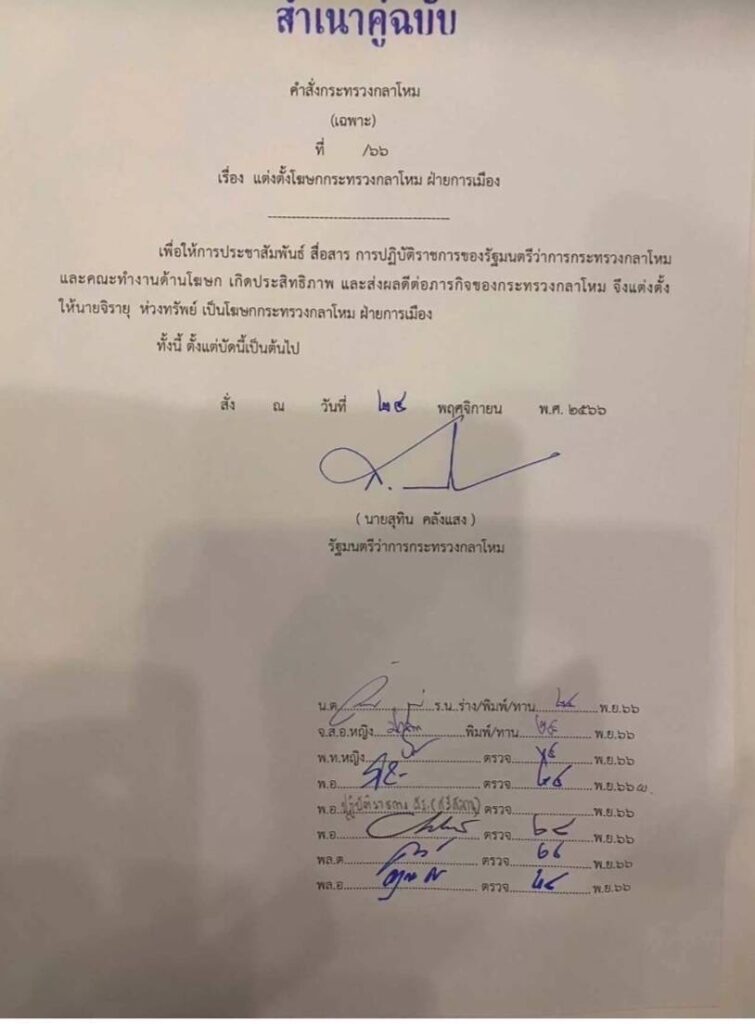 สำเนาคู่ฉบับ
คำสั่งกระทรวงกลาโหม
(เฉพาะ)
ที่ /๖๖
เรื่อง แต่งตั้งโฆษกกระทรวงกลาโหม ฝ่ายการเมือง
เพื่อให้การประชาสัมพันธ์ สื่อสาร การปฏิบัติราชการของรัฐมนตรีว่าการกระทรวงกลาโหม
และคณะทำงานด้านโฆษก เกิดประสิทธิภาพ และส่งผลดีต่อภารกิจของกระทรวงกลาโหม จึงแต่งตั้ง
ให้นายจิรายุ ห่วงทรัพย์ เป็นโฆษกกระทรวงกลาโหม ฝ่ายการเมือง
ทั้งนี้ ตั้งแต่บัดนี้เป็นต้นไป
สั่ง ณ วันที่ ๒๔ พฤศจิกายน พ.ศ. ๒๕๖๖
( นายสุทิน คลังแสง )
รัฐมนตรีว่าการกระทรวงกลาโหม
น.ต. ร.น..ร่าง/พิมพ์/ทาน ๒๔ พ.ย.๖๖
จ.ส.อ.หญิง พิมพ์/ทาน ๒๔ พ.ย.๖๖
พ.ท.หญิง ตรวจ ๒๔ พ.ย.๖๖
พ.อ. ตรวจ ๒๔ พ.ย.๖๖
พ.อ. ตรวจ พ.ย.๖๖
พ.อ. ตรวจ ๒๔ พ.ย.๖๖
พล.ต. ตรวจ ๒๔ พ.ย.๖๖
พล.อ. ตรวจ ๒๔ พ.ย.๖๖